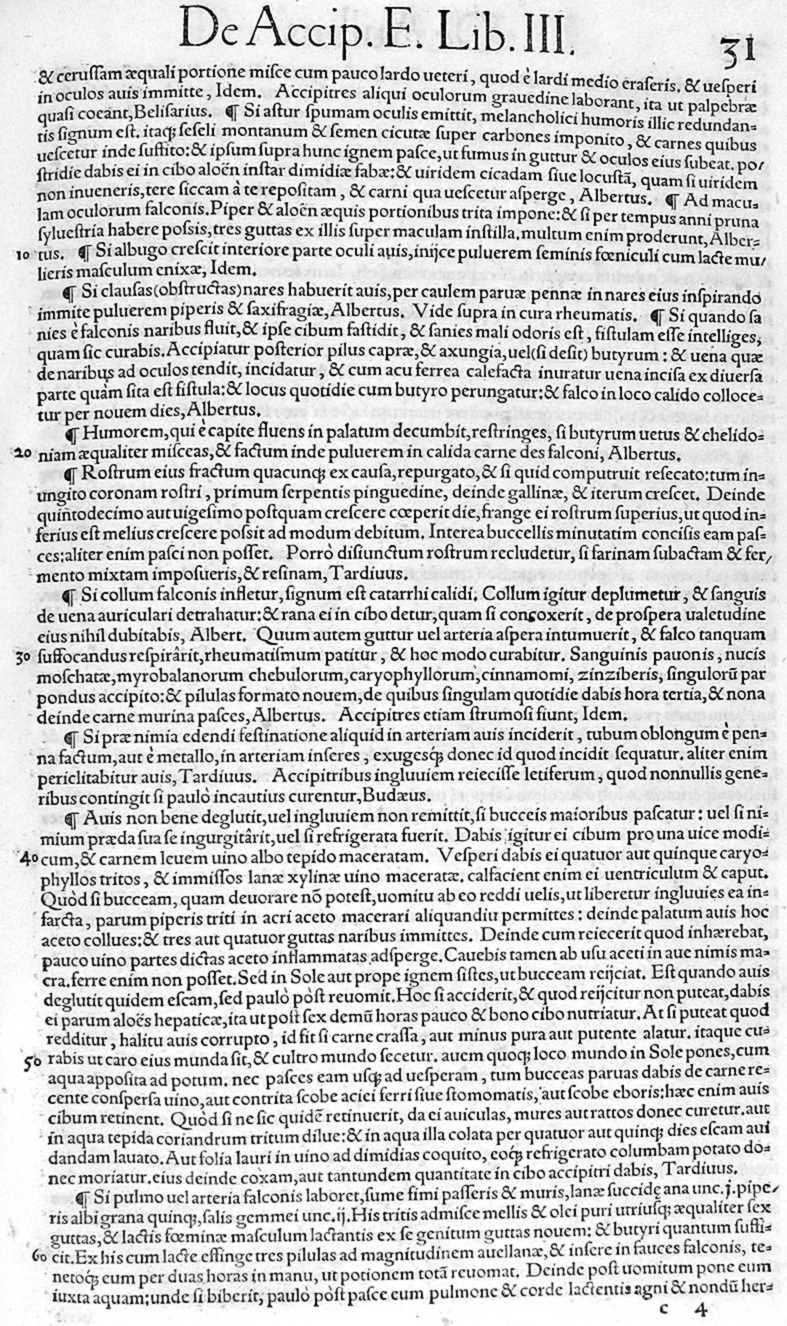 De Accip. E. Lib. III. 31
& cerussam æquali portione misce cum pauco lardo ueteri, quod è lardi medio eraseris. & uesperi
in oculos auis immitte, Idem. Accipitres aliqui oculorum grauedine laborant, ita ut palpebræ
quasi coëant, Belisarius. ¶ Si astur spumam oculis emittit, melancholici humoris illic redundan=
tis signum est. itaq; seseli montanum & semen cicutæ super carbones imponito, & carnes quibus
uescetur inde suffito: & ipsum supra hunc ignem pasce, ut fumus in guttur & oculos eius subeat. po/
stridie dabis ei in cibo aloën instar dimidiæ fabæ: & uiridem cicadam siue locustã, quam si uiridem
non inueneris, tere siccam à te repositam, & carni qua uescetur asperge, Albertus. ¶ Ad macu=
lam oculorum falconis. Piper & aloën æquis portionibus trita impone: & si per tempus anni pruna
syluestria habere possis, tres guttas ex illis super maculam instilla. multum enim proderunt, Alber=
10 tus. ¶ Si albugo crescit interiore parte oculi auis, inijce puluerem seminis fœniculi cum lacte mu/
lieris masculum enixæ, Idem.
¶ Si clausas (obstructas) nares habuerit auis, per caulem paruæ pennæ in nares eius inspirando
immite puluerem piperis & saxifragiæ, Albertus. Vide supra in cura rheumatis. ¶ Si quando sa
nies è falconis naribus fluit, & ipse cibum fastidit, & sanies mali odoris est, fistulam esse intelliges,
quam sic curabis. Accipiatur posterior pilus capræ, & axungia, uel (si desit) butyrum: & uena quæ
de naribus ad oculos tendit, incidatur, & cum acu ferrea calefacta inuratur uena incisa ex diuersa
parte quàm sita est fistula: & locus quotidie cum butyro perungatur: & falco in loco calido colloce=
tur per nouem dies, Albertus.
¶ Humorem, qui è capite fluens in palatum decumbit, restringes, si butyrum uetus & chelido=
20 niam æqualiter misceas, & factum inde puluerem in calida carne des falconi, Albertus.
¶ Rostrum eius fractum quacunq; ex causa, repurgato, & si quid computruit resecato: tum in=
ungito coronam rostri, primum serpentis pinguedine, deinde gallinæ, & iterum crescet. Deinde
quintodecimo aut uigesimo postquam crescere cœperit die, frange ei rostrum superius, ut quod in=
ferius est melius crescere possit ad modum debitum. Interea buccellis minutatim concisis eam pas=
ces: aliter enim pasci non posset. Porrò disiunctum rostrum recludetur, si farinam subactam & fer/
mento mixtam imposueris, & resinam, Tardiuus.
¶ Si collum falconis infletur, signum est catarrhi calidi. Collum igitur deplumetur, & sanguis
de uena auriculari detrahatur: & rana ei in cibo detur, quam si concoxerit, de prospera ualetudine
eius nihil dubitabis, Albert. Quum autem guttur uel arteria aspera intumuerit, & falco tanquam
30 suffocandus respirârit, rheumatismum patitur, & hoc modo curabitur. Sanguinis pauonis, nucis
moschatæ, myrobalanorum chebulorum, caryophyllorum, cinnamomi, zinziberis, singulorũ par
pondus accipito: & pilulas formato nouem, de quibus singulam quotidie dabis hora tertia, & nona
deinde carne murina pasces, Albertus. Accipitres etiam strumosi fiunt, Idem.
¶ Si præ nimia edendi festinatione aliquid in arteriam auis inciderit, tubum oblongum è pen=
na factum, aut è metallo, in arteriam inseres, exugesq; donec id quod incidit sequatur. aliter enim
periclitabitur auis, Tardiuus. Accipitribus ingluuiem reiecisse letiferum, quod nonnullis gene=
ribus contingit si paulò incautius curentur, Budæus.
¶ Auis non bene deglutit, uel ingluuiem non remittit, si bucceis maioribus pascatur: uel si ni=
mium præda sua se ingurgitârit, uel si refrigerata fuerit. Dabis igitur ei cibum pro una uice modi=
40 cum, & carnem leuem uino albo tepido maceratam. Vesperi dabis ei quatuor aut quinque caryo=
phyllos tritos, & immissos lanæ xylinæ uino maceratæ. calfacient enim ei uentriculum & caput.
Quòd si bucceam, quam deuorare nõ potest, uomitu ab eo reddi uelis, ut liberetur ingluuies ea in=
farcta, parum piperis triti in acri aceto macerari aliquandiu permittes: deinde palatum auis hoc
aceto collues: & tres aut quatuor guttas naribus immittes. Deinde cum reiecerit quod inhærebat,
pauco uino partes dictas aceto inflammatas adsperge. Cauebis tamen ab usu aceti in aue nimis ma=
cra. ferre enim non posset. Sed in Sole aut prope ignem sistes, ut bucceam reijciat. Est quando auis
deglutit quidem escam, sed paulò pòst reuomit. Hoc si acciderit, & quod reijcitur non puteat, dabis
ei parum aloës hepaticæ, ita ut post sex demũ horas pauco & bono cibo nutriatur. At si puteat quod
redditur, halitu auis corrupto, id fit si carne crassa, aut minus pura aut putente alatur. itaque cu=
50 rabis ut caro eius munda sit, & cultro mundo secetur. auem quoq; loco mundo in Sole pones, cum
aqua apposita ad potum. nec pasces eam usq; ad uesperam, tum bucceas paruas dabis de carne re=
cente conspersa uino, aut contrita scobe aciei ferri siue stomomatis, aut scobe eboris: hæc enim auis
cibum retinent. Quòd si ne sic quidẽ retinuerit, da ei auiculas, mures aut rattos donec curetur. aut
in aqua tepida coriandrum tritum dilue: & in aqua illa colata per quatuor aut quinq; dies escam aui
dandam lauato. Aut folia lauri in uino ad dimidias coquito, eoq; refrigerato columbam potato do=
nec moriatur. eius deinde coxam, aut tantundem quantitate in cibo accipitri dabis, Tardiuus.
¶ Si pulmo uel arteria falconis laboret, sume fimi passeris & muris, lanæ succidę ana unc. j. pipe/
ris albi grana quinq;, salis gemmei unc. ij. His tritis admisce mellis & olei puri utriusq; æqualiter sex
guttas, & lactis fœminæ masculum lactantis ex se genitum guttas nouem: & butyri quantum suffi=
60 cit. Ex his cum lacte effinge tres pilulas ad magnitudinem auellanæ, & insere in fauces falconis, te=
netoq; eum per duas horas in manu, ut potionem totã reuomat. Deinde post uomitum pone eum
iuxta aquam: unde si biberit, paulò pòst pasce eum pulmone & corde lactentis agni & nondũ her=
c 4